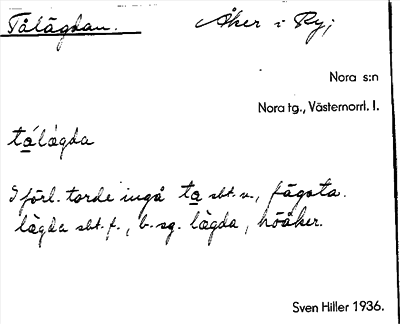 Tålägdan. Åker i Ry;
Nora s:n
Nora tg., Västernorrl. l.
tálàgda
I förl. torde ingå ta sbt. n., fägata.
lägda sbt. f., b. sg. lägda, höåker.
Sven Hiller 1936.